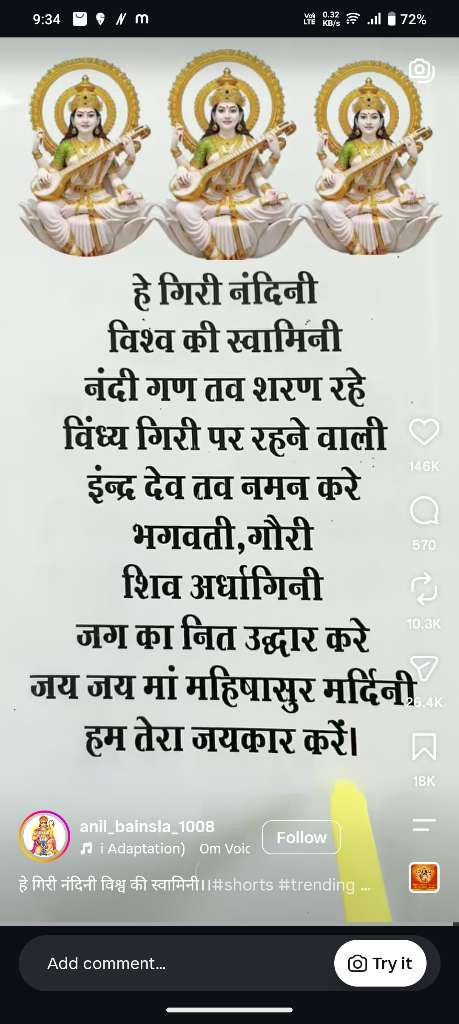 9:34
Vo) LTE
0.32 KB/s
72%
हे गिरी नंदिनी
विश्व की स्वामिनी
नंदी गण तव शरण रहे
विंध्य गिरी पर रहने वाली
इंन्द्र देव तव नमन करे
भगवती,गौरी
शिव अर्धागिनी
जग का नित उद्धार करे
जय जय मां महिषासुर मर्दिनी
हम तेरा जयकार करें।
146K
570
10.3K
26.4K
18K
anil_bainsla_1008
i Adaptation) Om Voic
Follow
हे गिरी नंदिनी विश्व की स्वामिनी।।#shorts #trending ...
Add comment...
Try it